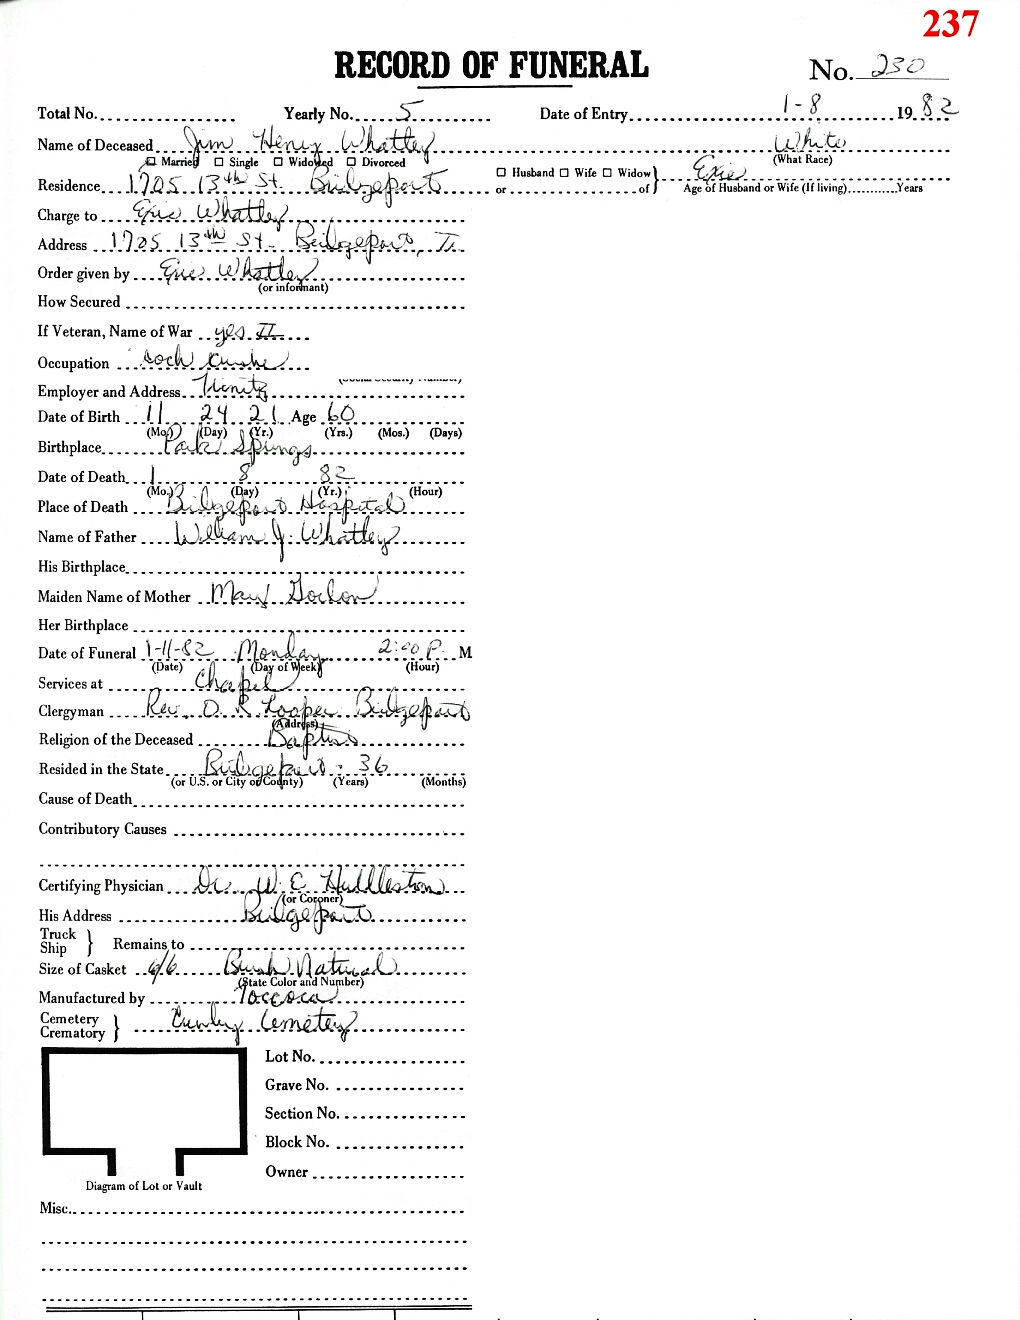 237
RECORD OF FUNERAL
No. 230
Total No. Yearly No. 5 Date of Entry 1-8 1982
Name of Deceased Jim Henry Whatley White
(What Race)
Married Single Widowed Divorced
Residence 1705 13th St. Bridgeport Husband Wife Widow
or of Age of Husband or Wife (If living) Years
Charge to Whatley
Address 1705 13th St. Bridgeport,
Order given by Whatley
(or informant)
How Secured
If Veteran, Name of War yes II
Occupation
Employer and Address Trinity
Date of Birth 11 24 21 Age 60
(Mo.) (Day) (Yr.) (Yrs.) (Mos.) (Days)
Birthplace Park Springs
Date of Death 1 8 82
(Mo.) (Day) (Yr.) (Hour)
Place of Death Bridgeport Hospital
Name of Father William J. Whatley
His Birthplace
Maiden Name of Mother Mary
Her Birthplace
Date of Funeral 1-11-82 Monday 2:00 P. M
(Date) (Day of Week) (Hour)
Services at Chapel
Clergyman Rev. O. R. Looper Bridgeport
(Address)
Religion of the Deceased Baptist
Resided in the State Bridgeport - 36
(or U.S. or City or County) (Years) (Months)
Cause of Death
Contributory Causes
Certifying Physician Dr. W. E. Huddleston
(or Coroner)
His Address Bridgeport
Truck
Ship } Remains to
Size of Casket 6/6 Natural
(State Color and Number)
Manufactured by Toccoca
Cemetery
Crematory } Cemetery
Lot No.
Grave No.
Section No.
Block No.
Owner
Diagram of Lot or Vault
Misc.